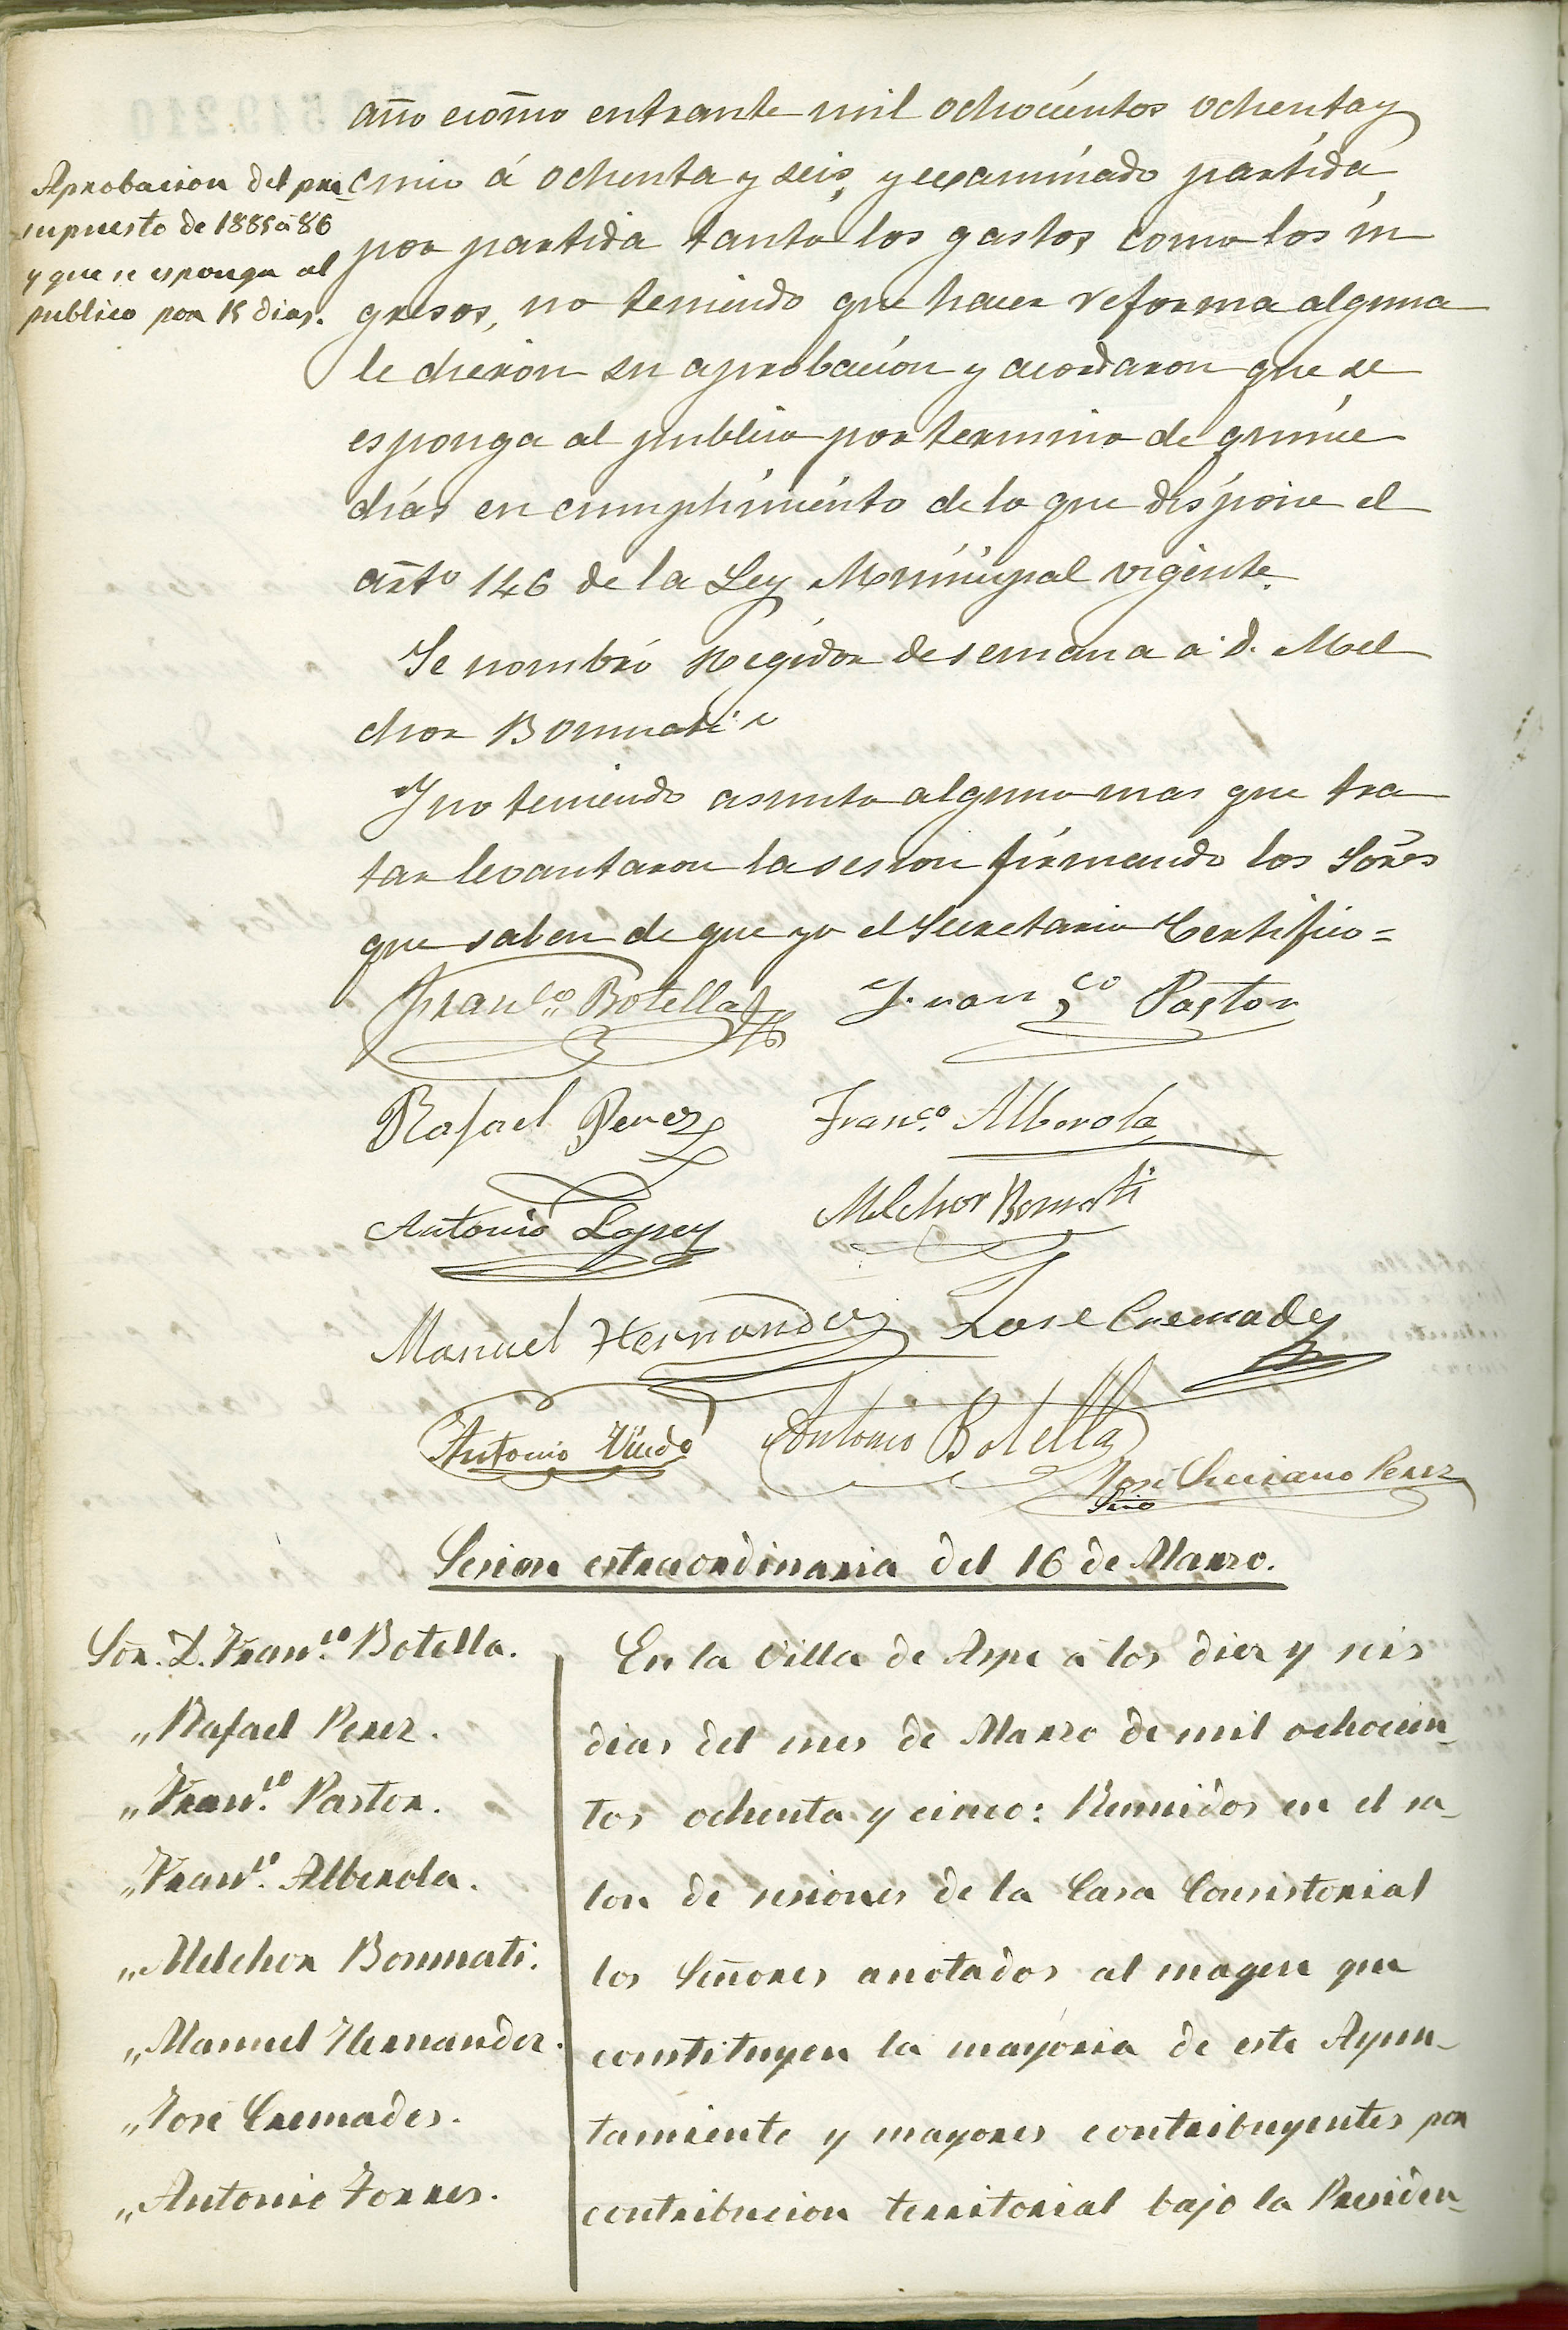 año ecoño entrante mil ochocientos ochenta y
Aprobacion del pre
supuesto de 1885 á 86
y que se esponga al
publico por 15 dias.
cinco á ochenta y seis, y examinado partida
por partida tanto los gastos como los in
gresos, no teniendo que hacer reforma alguna
le dieron su aprobación y acordaron que se
esponga al publico por termino de quince
días en cumplimiento de lo que dispone el
arto 146 de la Ley Municipal vigente.
Se nombró Regidor de semana a D. Mel
chor Bonmati
Y no teniendo asunto alguno mas que tra
tar levantaron la sesion firmando los Sores
que saben de que yo el Secretario Certifico =
Franco. Botella
Franco Pastor
Rafael Perez
Franco. Alberola
Antonio Lopez
Melchor Bonmati
Manuel Hernandez
Jose Cremades
Antonio Viudo
Antonio Botella
José Luciano Perez
Srio
Sesion estraordinaria del 16 de Marzo.
Sor. D. Franco. Botella.
„ Rafael Perez.
„ Franco. Pastor.
„ Franco. Alberola.
„ Melchor Bonmati.
„ Manuel Hernandez.
„ Jose Cremades.
„ Antonio Torres.
En la Villa de Aspe a los diez y seis
dias del mes de Marzo de mil ochocien-
tos ochenta y cinco: Reunidos en el sa-
lon de sesiones de la Casa Consistorial
los Señores anotados al magen que
constituyen la mayoria de este Ayun-
tamiento y mayores contribuyentes por
contribucion territorial bajo la Presiden-